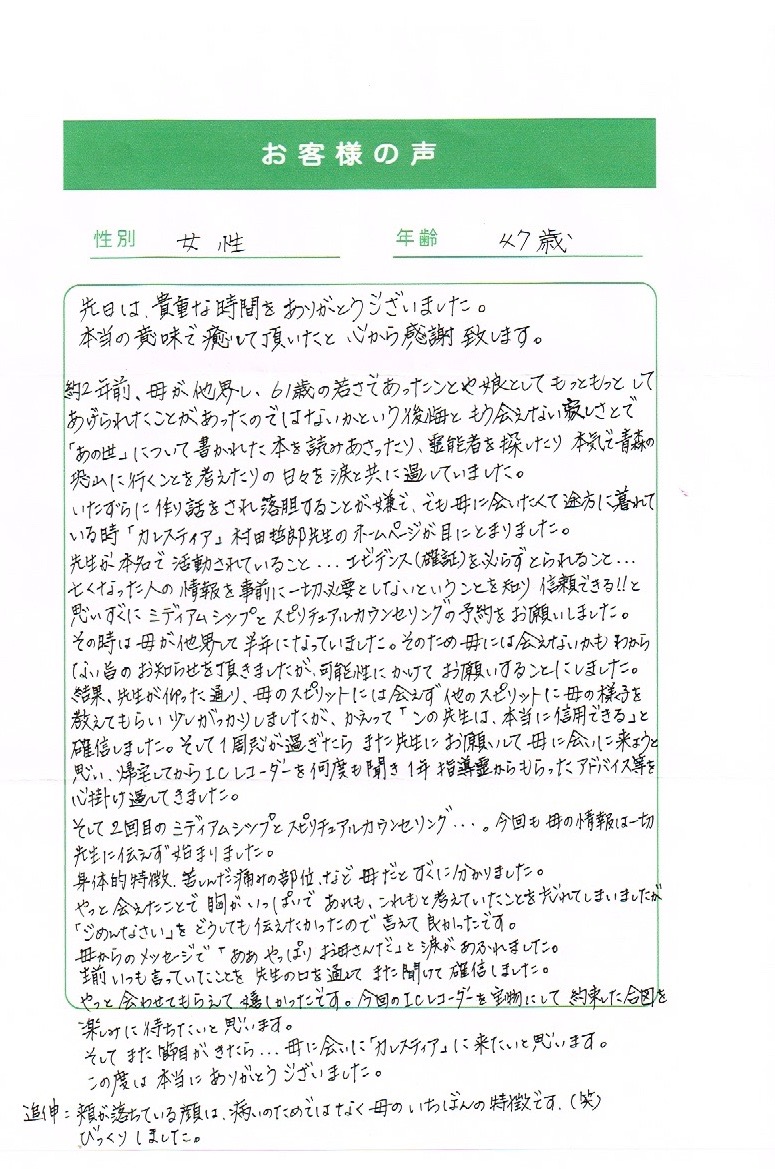 お客様の声
性別 女性 年齢 47歳
先日は、貴重な時間をありがとうございました。
本当の意味で癒して頂いたと心から感謝致します。
約2年前、母が他界し、61歳の若さであったことや娘としてもっともっとして
あげられたことがあったのではないかという後悔ともう会えない寂しさとで
「あの世」について書かれた本を読みあさったり、霊能者を探したり本気で青森の
恐山に行くことを考えたりの日々を涙と共に過していました。
いたずらに作り話をされ落胆することが嫌で、でも母に会いたくて途方に暮れて
いる時「カレスティア」村田哲郎先生のホームページが目にとまりました。
先生が本名で活動されていること...エビデンス(確証)を必らずとられること...
亡くなった人の情報を事前に一切必要としないということを知り信頼できる!!と
思いすぐにミディアムシップとスピリチュアルカウンセリングの予約をお願いしました。
その時は母が他界して半年になっていました。そのため母には会えないかもわから
ない旨のお知らせを頂きましたが、可能性にかけてお願いすることにしました。
結果、先生が仰った通り、母のスピリットには会えず他のスピリットに母の様子を
教えてもらい少しがっかりしましたが、かえって「この先生は、本当に信用できる」と
確信しました。そして1周忌が過ぎたらまた先生にお願いして母に会いに来ようと
思い、帰宅してからICレコーダーを何度も聞き1年指導霊からもらったアドバイス等を
心掛け過してきました。
そして2回目のミディアムシップとスピリチュアルカウンセリング...。今回も母の情報は一切
先生に伝えず始まりました。
身体的特徴、苦しんだ痛みの部位、など母だとすぐに分かりました。
やっと会えたことで胸がいっぱいであれも、これもと考えていたことを忘れてしまいましたが
「ごめんなさい」をどうしても伝えたかったので言えて良かったです。
母からのメッセージで「ああやっぱりお母さんだ」と涙があふれました。
生前いつも言っていたことを先生の口を通してまた聞けて確信しました。
やっと会わせてもらえて嬉しかったです。今回のICレコーダーを宝物にして約束した合図を
楽しみに待ちたいと思います。
そしてまた節目がきたら...母に会いに「カレスティア」に来たいと思います。
この度は本当にありがとうございました。
追伸:頬が落ちている顔は、病いのためではなく母のいちばんの特徴です。(笑)
びっくりしました。